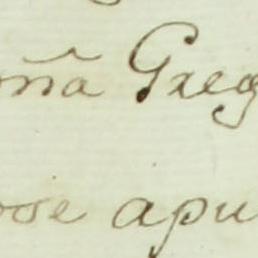 oña Greg
ose apu